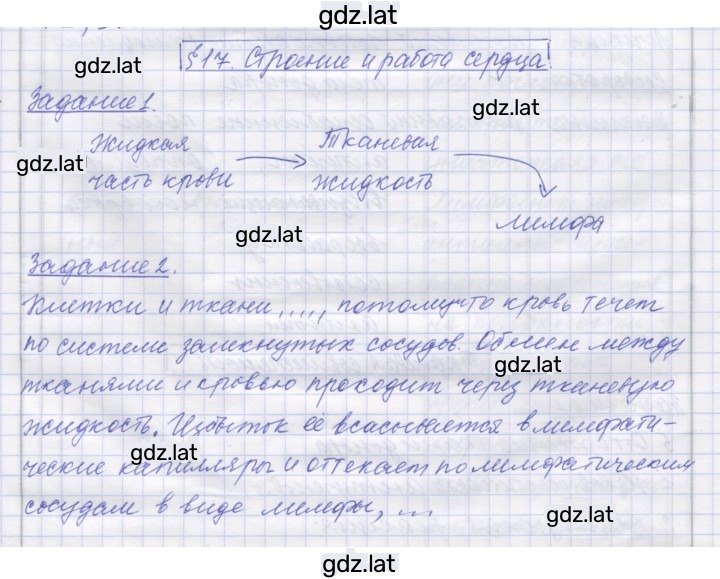 gdz.lat
§17. Строение и работа сердца
gdz.lat
Задание 1.
gdz.lat
Жидкая
часть крови
Тканевая
жидкость
gdz.lat
лимфа
gdz.lat
Задание 2.
Клетки и ткани,..., потому что кровь течет
по системе замкнутых сосудов. Обмен между
gdz.lat
тканями и кровью проходит через тканевую
жидкость. Избыток её всасывается в лимфати-
gdz.lat
ческие капилляры и оттекает по лимфатическим
сосудам в виде лимфы, ...
gdz.lat
gdz.lat